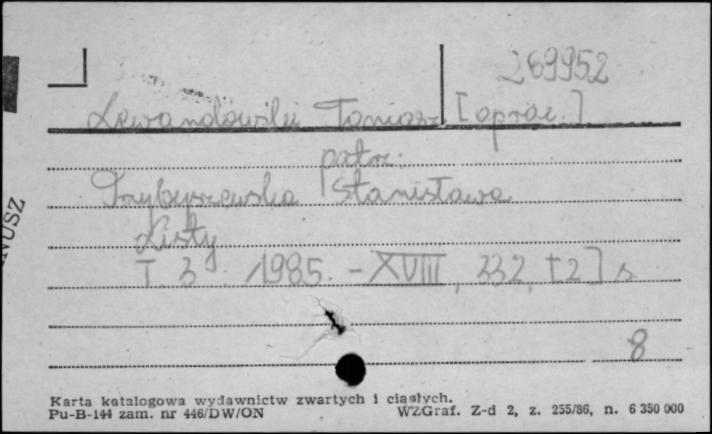 269952
Lewandowski Tomasz [oprac.]
patrz:
Przybyszewska Stanisława
Listy
T. 3 . 1985. - XVIII, 332, [2] s
8
Karta katalogowa wydawnictw zwartych i ciągłych.
Pu-B-144 zam. nr 446/DW/ON WZGraf. Z-d 2, z. 255/86, n. 6 350 000
NUSZ